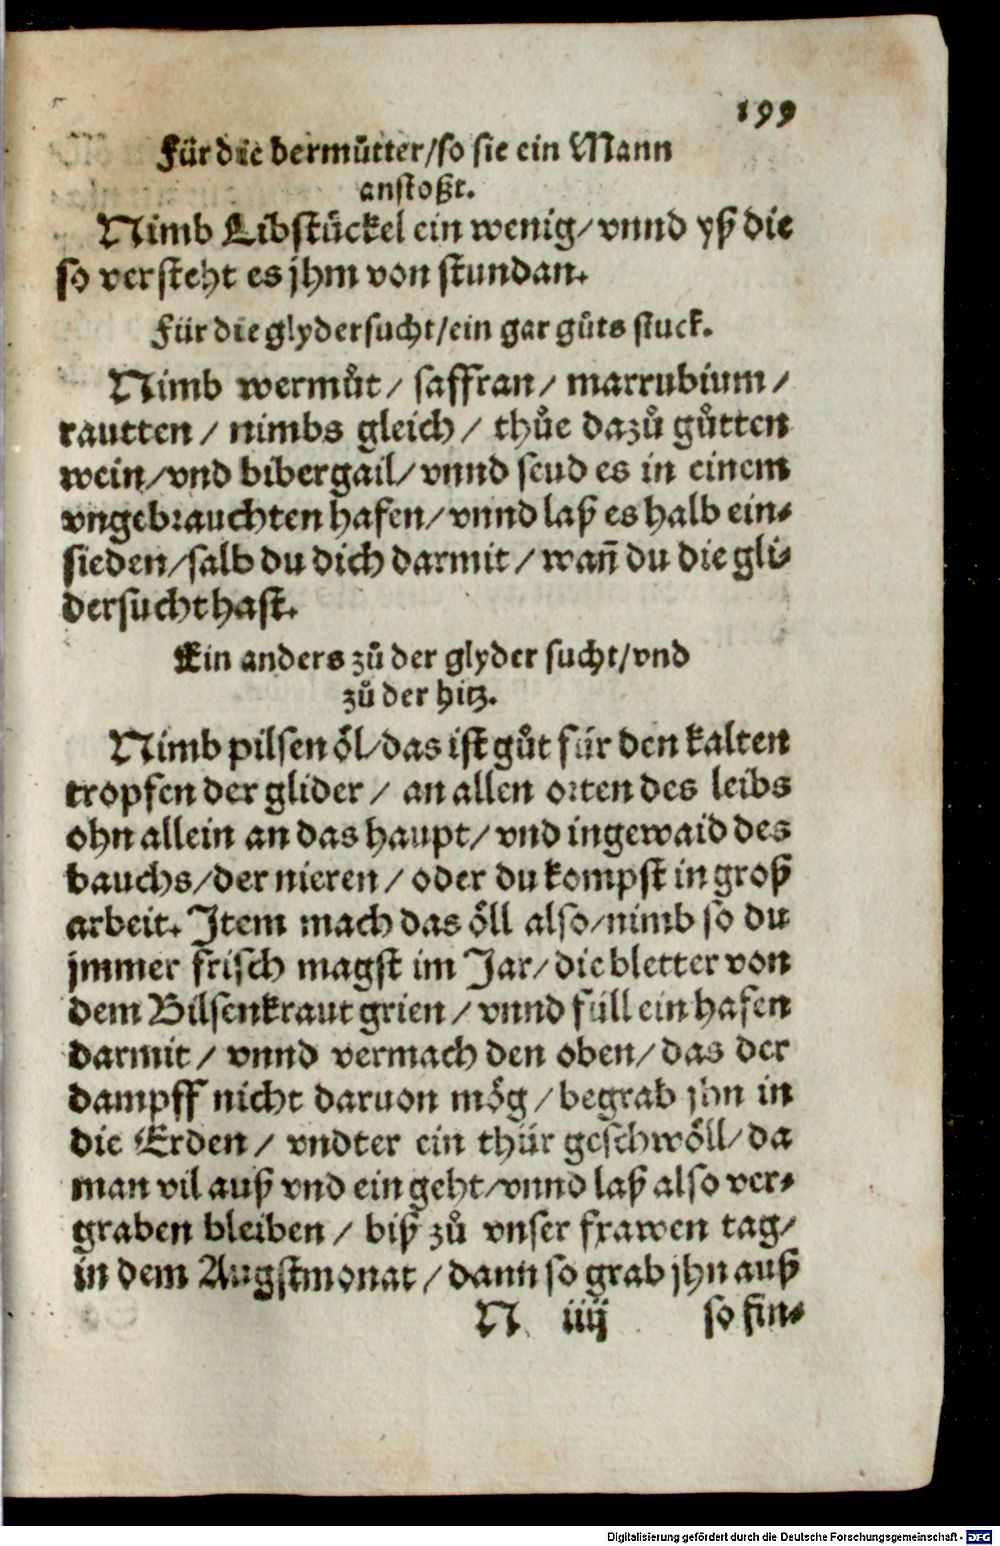 199
Für die bermůtter/so sie ein Mann
anstoßt.
Nimb Libstückel ein wenig/vnnd yß die
so versteht es jhm von stundan.
Für die glydersucht/ein gar gůts stuck.
Nimb wermůt/ saffran/ marrubium/
rautten/ nimbs gleich/ thůe dazů gůtten
wein/vnd bibergail/vnnd seud es in einem
vngebrauchten hafen/vnnd laß es halb ein-
sieden/salb du dich darmit/wañ du die gli-
dersucht hast.
Ein anders zů der glyder sucht/vnd
zů der hitz.
Nimb pilsen öl/das ist gůt für den kalten
tropfen der glider/ an allen orten des leibs
ohn allein an das haupt/vnd ingewaid des
bauchs/der nieren/ oder du kompst in groß
arbeit. Item mach das öll also/nimb so du
jmmer frisch magst im Jar/die bletter von
dem Bilsenkraut grien/vnnd füll ein hafen
darmit/ vnnd vermach den oben/das der
dampff nicht daruon mög/begrab jhn in
die Erden/ vndter ein thür geschwöll/da
man vil auß vnd ein geht/vnnd laß also ver-
graben bleiben/ biß zů vnser frawen tag/
in dem Augstmonat/dann so grab jhn auß
N iiij so fin-
Digitalisierung gefördert durch die Deutsche Forschungsgemeinschaft - DFG